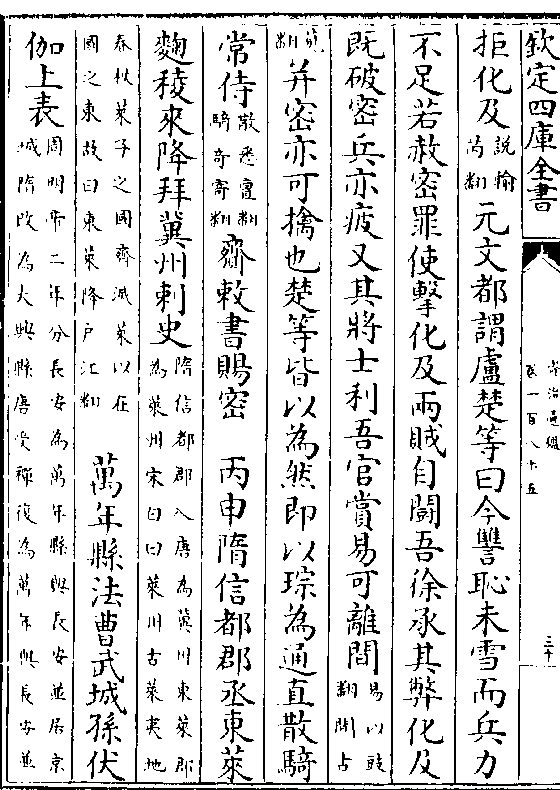 欽定四庫全書
資治通鑑
卷一百八十五
三十
拒化及說輸芮翻元文都謂盧楚等曰今讐恥未雪而兵力
不足若赦密罪使擊化及兩賊自鬬吾徐承其弊化及
既破密兵亦疲又其將士利吾官賞易可離間易以豉翻間古
莧翻并密亦可擒也楚等皆以為然即以琮為通直散騎
常侍散悉亶翻騎奇寄翻齎敕書賜密　丙申隋信都郡丞東萊
麴稜來降拜冀州刺史隋信都郡入唐為冀州東萊郡為萊州宋白曰萊州古萊夷地
春秋萊子之國齊滅萊以在國之東故曰東萊降户江翻　萬年縣法曹武城孫伏
伽上表周明帝二年分長安為萬年縣與長安並居京城隋改為大興縣唐受禪復為萬年與長安並